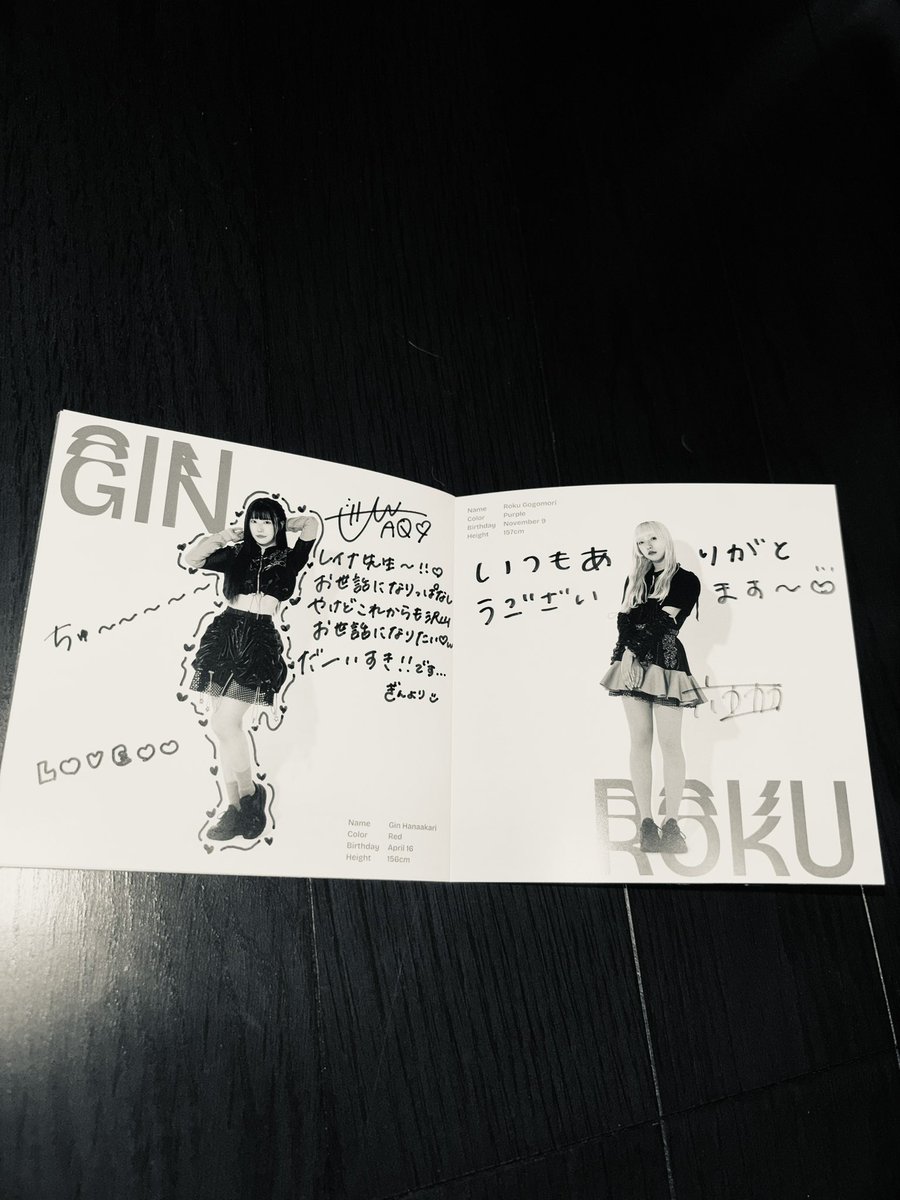 GIN
AQ
レイナ先生〜!!♡
お世話になりっぱなし
やけどこれからも沢山
お世話になりたい♡w
だーいすき!!です...
ぎんより
ちゅ〜〜〜〜〜
LOVE
Name Gin Hanaakari
Color Red
Birthday April 16
Height 156cm
Name Roku Gogomori
Color Purple
Birthday November 9
Height 157cm
いつもありがと
うございます〜♡
ROKU